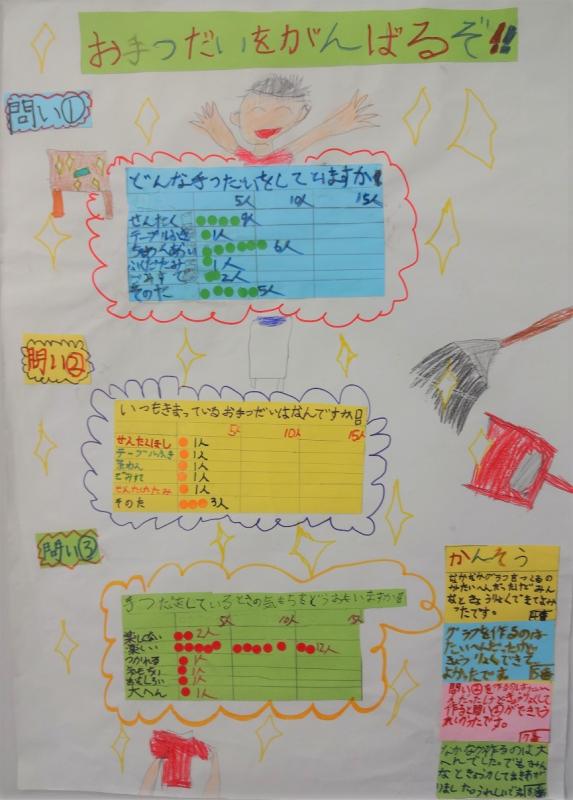 お手つだいをがんばるぞ!!
問い①
どんな手つだいをしていますか
5人 10人 15人
せんたく 4人
テーブルふき 1人
6人
1人
2人
そのた 5人
問い②
いつもきまっているお手つだいはなんですか
5人 10人 15人
せんたくほし 1人
テーブルふき 1人
1人
ごみすて 1人
せんたくたたみ 1人
そのた 3人
問い③
手つだをしているときの気もちをどうおもいますか
5人 10人 15人
楽しない 2人
楽しい 12人
つかれる 1人
1人
おもしろい 1人
大へん 1人
かんそう
なかなかグラフをつくるの
がたいへんだったけどみん
なときょう力してできてよか
ったです。
グラフを作るのは
たいへんだったけど
きょう力してできて
よかったです
作ると問い④ができて
れしかったです。
なかなか作るのは大
へんでした。でもみん
なときょう力して出き上が
りましたうれしいです